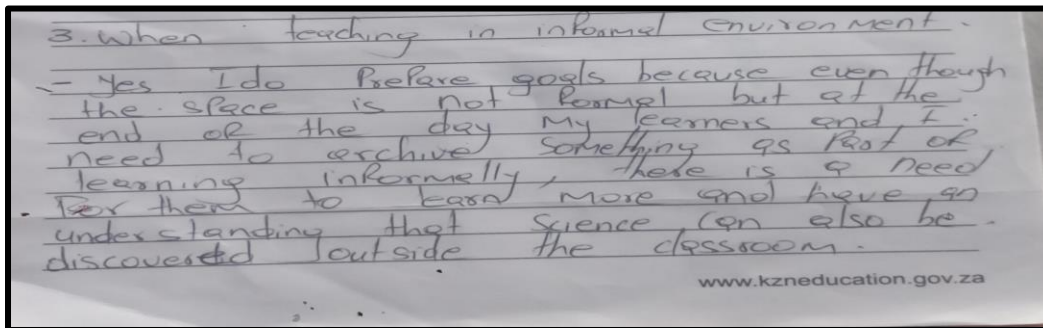 3. When teaching in informal environment.
- Yes I do Prepare goals because even though
the space is not formal but at the
end of the day my learners and I
need to archive something as Part of
learning informally, there is a need
For them to learn more and have an
understanding that Science can also be
discovered outside the classroom.
www.kzneducation.gov.za